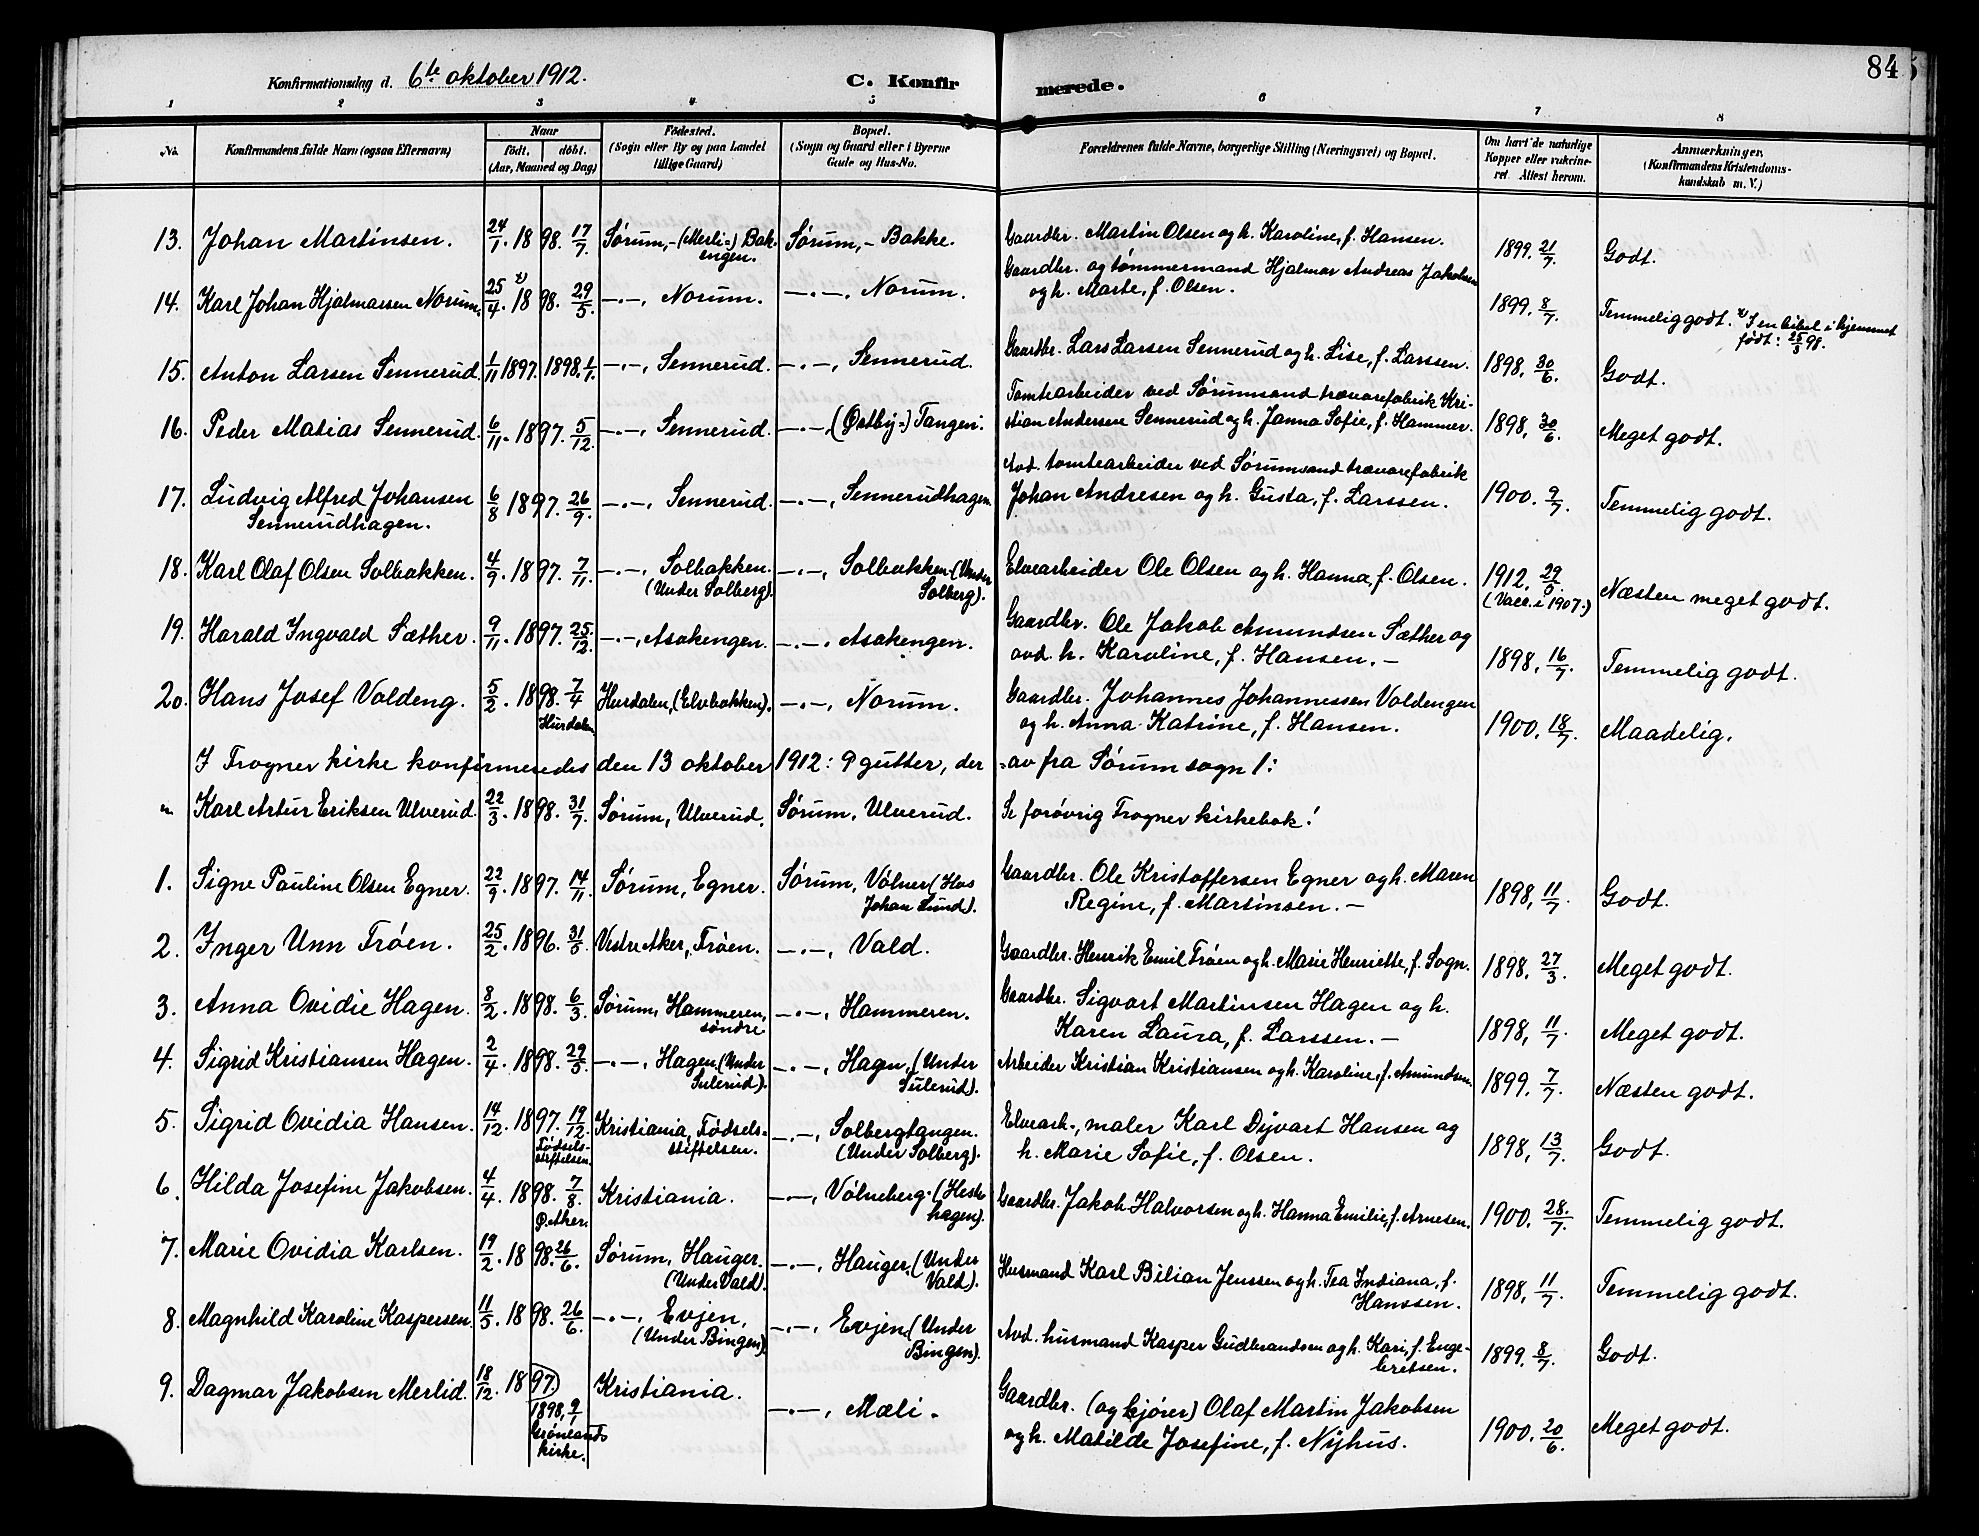 84
Konfirmationsdag d. 6te oktober 1912. C. Konfirmerede.
1 2 3 4 5 6 7 8
No. Konfirmandens fulde Navn (ogsaa Efternavn) Naar født. døbt. (Aar, Maaned og Dag) Fødested. (Sogn eller By og paa Landet tillige Gaard) Bopæl. (Sogn og Gaard eller i Byerne Gade og Hus-No. Forældrenes fulde Navne, borgerlige Stilling (Næringsvei) og Bopæl. Om havt de naturlige Kopper eller vakcineret. Attest herom. Anmærkninger. (Konfirmandens Kristendomskundskab m. V.)
13. Johan Martinsen. 24/1. 1898. 17/7. Sørum,- (Merli-) Bakengen. Sørum,- Bakke. Gaardbr. Martin Olsen og h. Karoline, f. Hansen. 1899. 21/7. Godt.
14. Karl Johan Hjalmarsen Norum. 25/4. x) 1898. 29/5. -"-, Norum. -"-, Norum. Gaardbr. og tømmermand Hjalmar Andreas Jakobsen
og h. Marte, f. Olsen. 1899. 8/7. Temmelig godt. x) I en bibel i hjemmet
født: 25/3 98.
15. Anton Larsen Sennerud. 1/11 1897. 1898. 1/1. -"-, Sennerud. -"-, Sennerud. Gaardbr. Lars Larsen Sennerud og h. Lise, f. Larssen. 1898. 30/6. Godt.
16. Peder Matias Sennerud. 6/11. 1897. 5/12. -"-, Sennerud. -"-, (Østby-) Tangen. Tomtearbeider ved Sørumsand trævarefabrik Kri-
stian Andersen Sennerud og h. Janna Sofie, f. Hammer. 1898, 30/6. Meget godt.
17. Ludvig Alfred Johansen
Sennerudhagen. 6/8 1897. 26/9. -"-, Sennerud. -"-, Sennerudhagen. Avd. tomtearbeider ved Sørumsand trævarefabrik
Johan Andresen og h. Gusta, f. Larssen. 1900. 9/7. Temmelig godt.
18. Karl Olaf Olsen Solbakken. 4/9. 1897. 7/11. -"-, Solbakken.
(Under Solberg). -"-, Solbakken (Under
Solberg). Elvearbeider Ole Olsen og h. Hanna, f. Olsen. 1912, 29/
(Vacc. i 1907.) Næsten meget godt.
19. Harald Ingvald Sæther. 9/11. 1897. 25/12. -"-, Asakengen. -"-, Asakengen. Gaardbr. Ole Jakob Amundsen Sæther og
avd. h. Karoline, f. Hansen. - 1898, 16/7. Temmelig godt.
20. Hans Josef Voldeng. 5/2. 1898. 7/4
Hurdalen Hurdalen, (Elvebakken). -"-, Norum. Gaardbr. Johannes Johannessen Voldengen
og h. Anna Katrine, f. Hansen. 1900. 18/7. Maadelig.
I Frogner kirke konfirmeredes den 13 oktober 1912: 9 gutter, der-av fra Sørum sogn 1:
" Karl Artur Eriksen Ulverud. 22/3. 1898. 31/7. Sørum, Ulverud. Sørum, Ulverud. Se forøvrig Frogner kirkebok!
1. Signe Pauline Olsen Egner. 22/9. 1897. 14/11. Sørum, Egner. Sørum, Vølner (Hos
Johan Lund). Gaardbr. Ole Kristoffersen Egner og h. Maren
Regine, f. Martinsen. - 1898, 11/7. Godt.
2. Inger Unn Trøen. 25/2. 1896. 31/5. Vestre Aker, Trøen. -"-, Vald. Gaardbr. Henrik Emil Trøen og h. Marie Henriette, f. Sogn. 1898, 27/3. Meget godt.
3. Anna Ovidie Hagen. 8/2. 1898. 6/3. Sørum, Hammeren,
søndre -"-, Hammeren. Gaardbr. Sigvart Martinsen Hagen og h.
Karen Laura, f. Larssen. - 1898, 11/7. Meget godt.
4. Sigrid Kristiansen Hagen. 2/4. 1898. 29/5. -"-, Hagen, (Under
Sulerud). -"-, Hagen, (Under
Sulerud). Arbeider Kristian Kristiansen og h. Karoline, f. Amundsen. 1899. 7/7. Næsten godt.
5. Sigrid Ovidia Hansen. 14/12. 1897. 19/12.
Fødsels-
stiftelsen. Kristiania, Fødsels-
stiftelsen. -"-, Solbergtangen.
(Under Solberg). Elvearb., maler Karl Dyvart Hansen og
h. Marie Sofie, f. Olsen. 1898, 13/7. Godt.
6. Hilda Josefine Jakobsen. 4/4. 1898. 7/8.
Ø. Aker. Kristiania. -"-, Vølneberg. (Heste
hagen). Gaardbr. Jakob Halvorsen og h. Hanna Emilie, f. Arnesen. 1900. 28/7. Temmelig godt.
7. Marie Ovidia Karlsen. 19/2. 1898. 26/6. Sørum, Hauger.
(Under Vald). -"-, Hauger, (Under
Vald). Husmand Karl Bilian Jenssen og h. Tea Indiana, f.
Hanssen. 1898, 11/7. Temmelig godt.
8. Magnhild Karoline Kaspersen. 11/5. 1898. 26/6. -"-, Evjen,
(Under Bingen). -"-, Evjen, (Under
Bingen). Avd. husmand Kasper Gudbrandsen og h. Kari, f. Enge-
bretsen. 1899. 8/7. Godt.
9. Dagmar Jakobsen Merlid. 18/12. 1897.
1898, 9/1
Grønlands
kirke. Kristiania. -"-, Mæli. Gaardbr. (og kjører) Olaf Martin Jakobsen
og h. Matilde Josefine, f. Nyhus. 1900. 20/6. Meget godt.